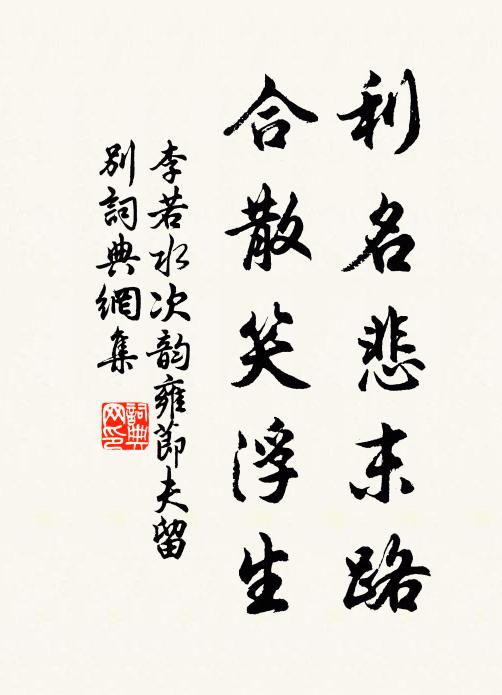 利名悲末路
合散笑浮生
李若水次韵雍節夫留
別詞典網集
詞典
网印